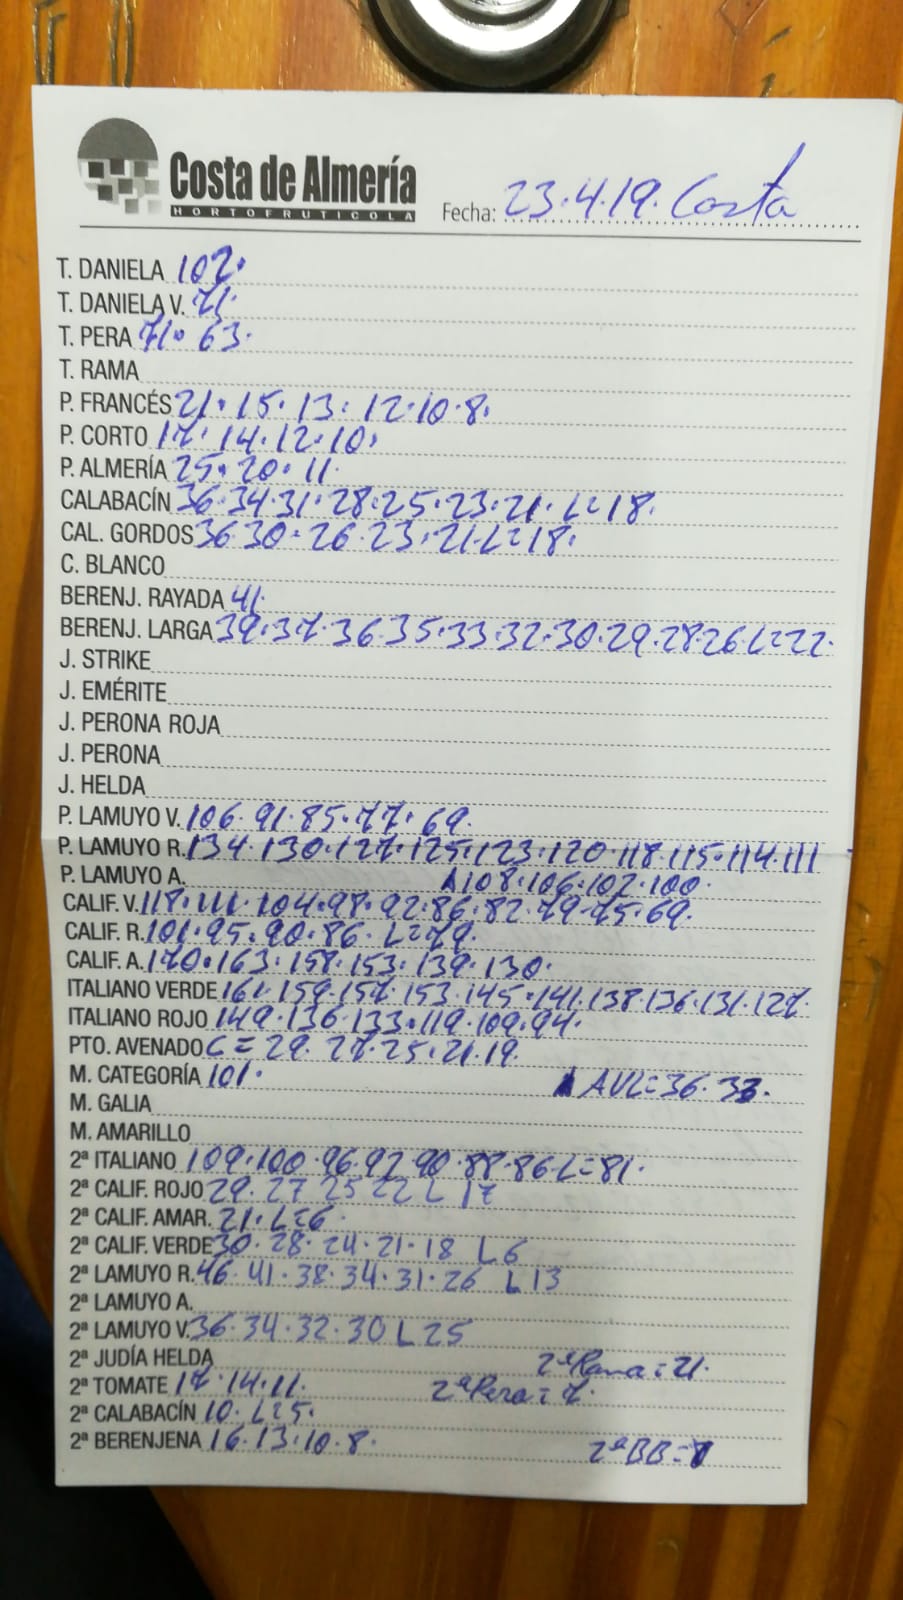 Costa de Almería
HORTOFRUTICOLA
Fecha: 23.4.19. Costa
T. DANIELA 102.
T. DANIELA V. 71.
T. PERA 71. 63.
T. RAMA
P. FRANCÉS 21. 15. 13. 12. 10. 8.
P. CORTO 17. 14. 12. 10.
P. ALMERÍA 25. 20. 11.
CALABACÍN 36. 34. 31. 28. 25. 23. 21. L=18.
CAL. GORDOS 36. 30. 26. 23. 21. L=18.
C. BLANCO
BERENJ. RAYADA 41.
BERENJ. LARGA 39. 37. 36. 35. 33. 32. 30. 29. 28. 26. L=22.
J. STRIKE
J. EMÉRITE
J. PERONA ROJA
J. PERONA
J. HELDA
P. LAMUYO V. 106. 91. 85. 77. 69.
P. LAMUYO R. 134. 130. 127. 125. 123. 120. 118. 115. 114. 111
P. LAMUYO A. 108. 106. 102. 100.
CALIF. V. 118. 111. 104. 98. 92. 86. 82. 79. 75. 69.
CALIF. R. 101. 95. 90. 86. L=79.
CALIF. A. 170. 163. 158. 153. 139. 130.
ITALIANO VERDE 161. 159. 157. 153. 145. 141. 138. 136. 131. 127.
ITALIANO ROJO 149. 136. 133. 119. 109. 94.
PTO. AVENADO C = 29. 27. 25. 21. 19.
M. CATEGORÍA 101. AVL=36. 33.
M. GALIA
M. AMARILLO
2ª ITALIANO 109. 100. 96. 92. 90. 88. 86. L=81.
2ª CALIF. ROJO 29. 27 25 22 L 17
2ª CALIF. AMAR. 21. L=6.
2ª CALIF. VERDE 30. 28. 24. 21. 18 L6
2ª LAMUYO R. 46. 41. 38. 34. 31. 26 L 13
2ª LAMUYO A.
2ª LAMUYO V. 36. 34. 32. 30 L 25
2ª JUDÍA HELDA 2ª Rama = 21.
2ª TOMATE 17. 14. 11. 2ª Pera = 7.
2ª CALABACÍN 10. L=5.
2ª BERENJENA 16. 13. 10. 8. 2ª BB =